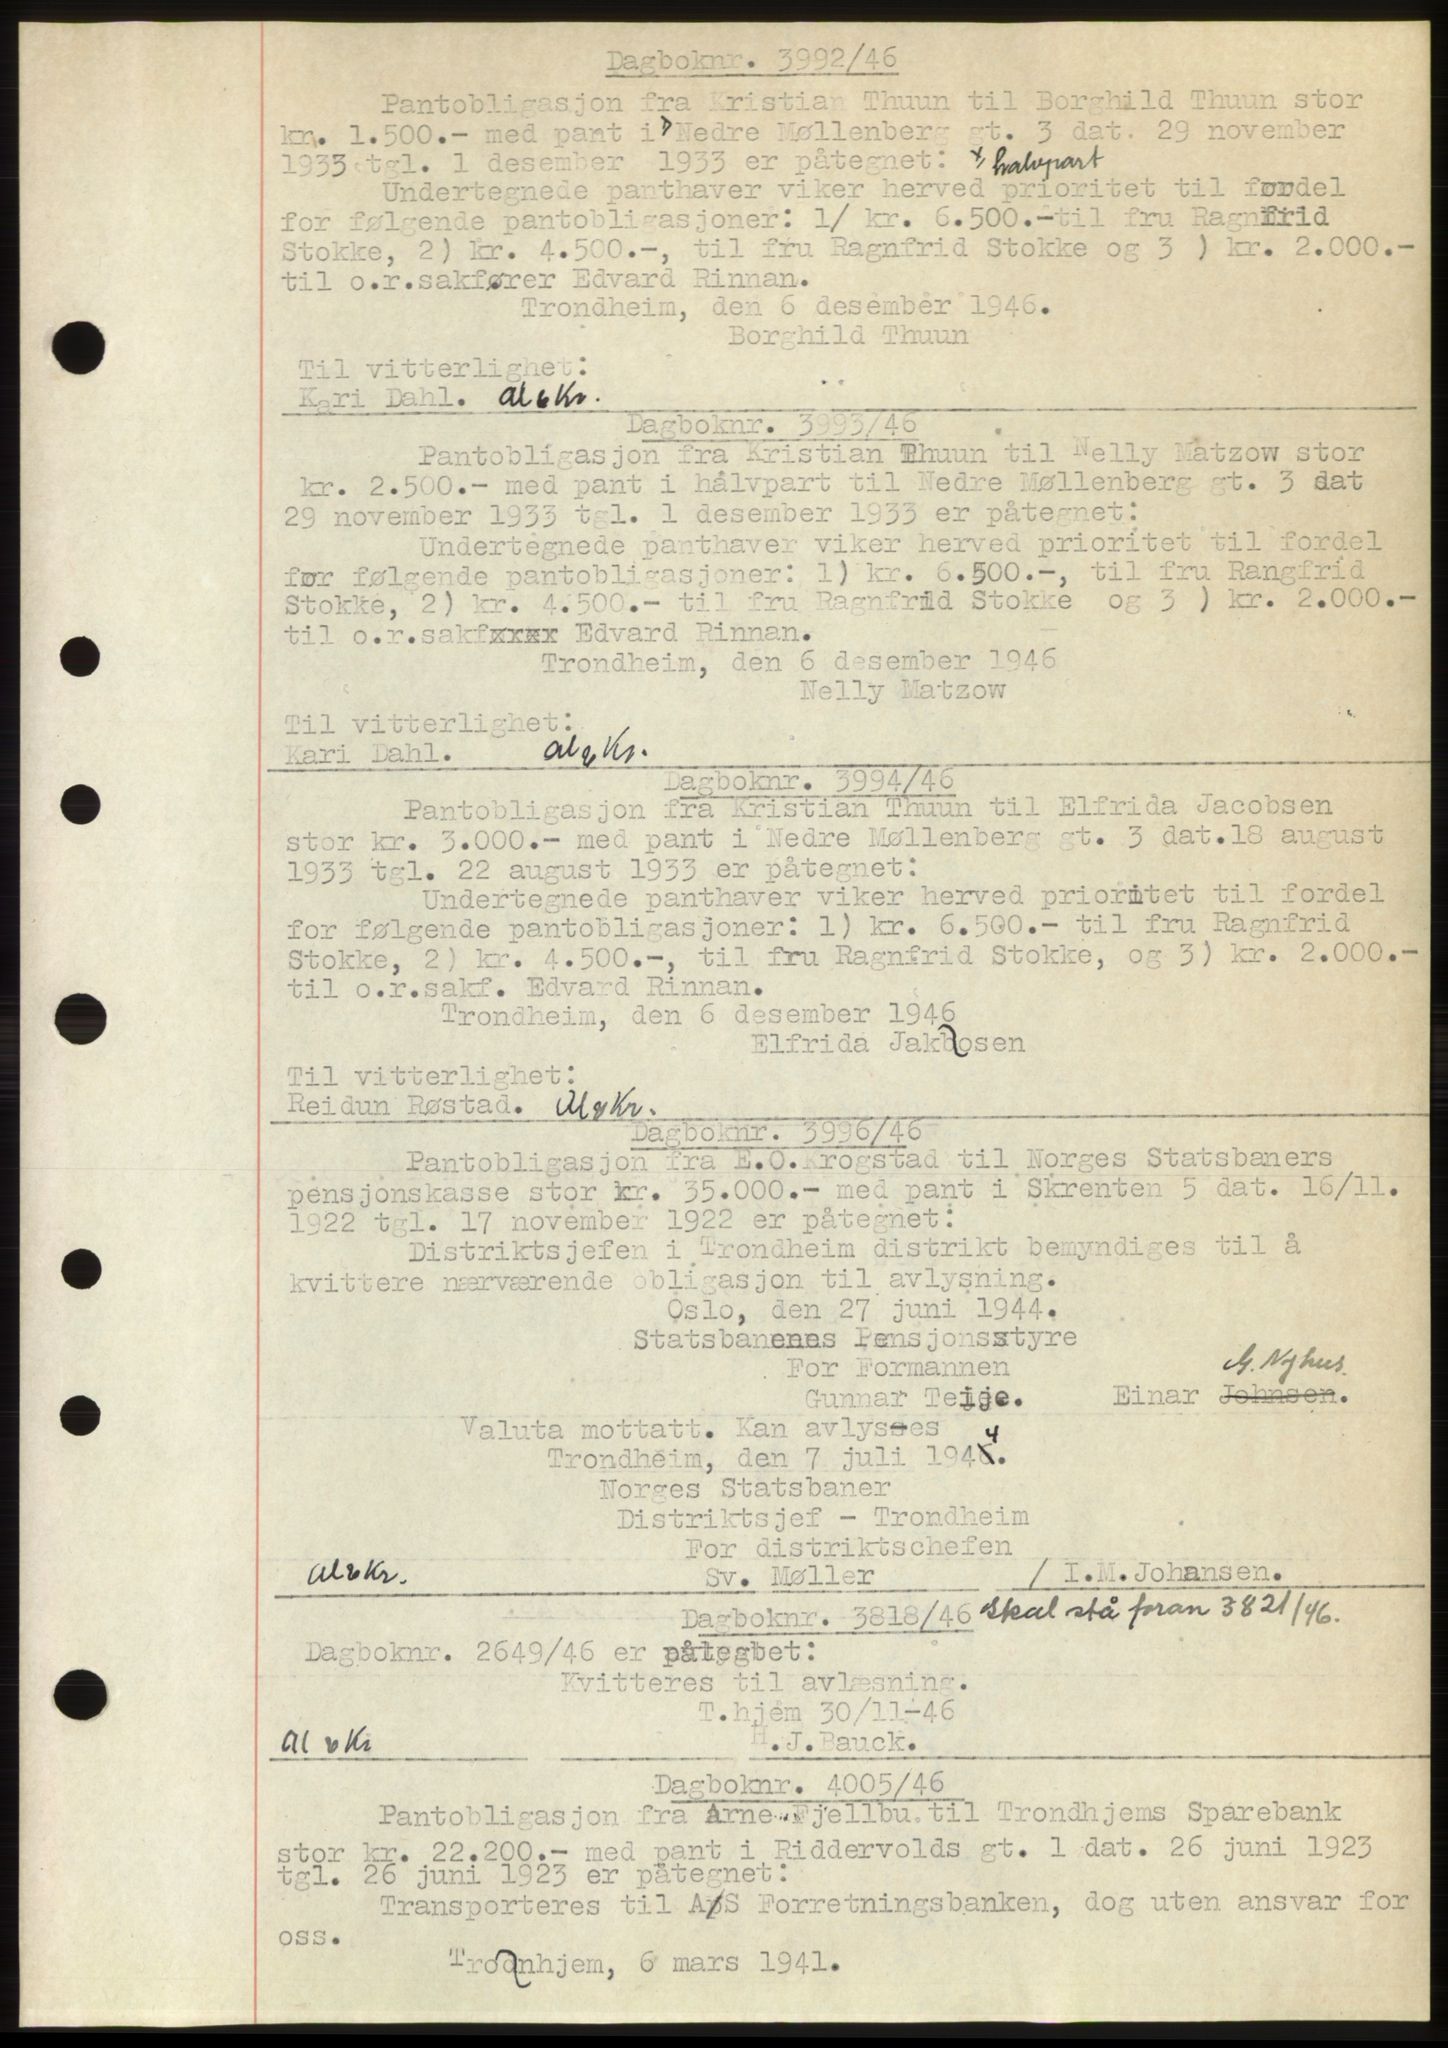 Dagboknr. 3992/46
Pantobligasjon fra Kristian Thuun til Borghild Thuun stor
kr. 1.500.- med pant i Nedre Møllenberg gt. 3 dat. 29 november
1933 tgl. 1 desember 1933 er påtegnet: x, halvpart
Undertegnede panthaver viker herved prioritet til fordel
for følgende pantobligasjoner: 1/ kr. 6.500.-til fru Ragnfrid
Stokke, 2) kr. 4.500.-, til fru Ragnfrid Stokke og 3 ) kr. 2.000.-
til o.r.sakfører Edvard Rinnan.
Trondheim, den 6 desember 1946.
Borghild Thuun
Til vitterlighet:
Kari Dahl.
Dagboknr. 3993/46
Pantobligasjon fra Kristian Thuun til Nelly Matzow stor
kr. 2.500.- med pant i hålvpart til Nedre Møllenberg gt. 3 dat
29 november 1933 tgl. 1 desember 1933 er påtegnet:
Undertegnede panthaver viker herved prioritet til fordel
for følgende pantobligasjoner: 1) kr. 6.500.-, til fru Rangfrid
Stokke, 2) kr. 4.500.- til fru Ragnfrid Stokke og 3 ) kr. 2.000.-
til o.r.sakfxxxx Edvard Rinnan.
Trondheim, den 6 desember 1946
Nelly Matzow
Til vitterlighet:
Kari Dahl.
Dagboknr. 3994/46
Pantobligasjon fra Kristian Thuun til Elfrida Jacobsen
stor kr. 3.000.- med pant i Nedre Møllenberg gt. 3 dat.18 august
1933 tgl. 22 august 1933 er påtegnet:
Undertegnede panthaver viker herved prioritet til fordel
for følgende pantobligasjoner: 1) kr. 6.500.- til fru Ragnfrid
Stokke, 2) kr. 4.500.-, til fru Ragnfrid Stokke, og 3) kr. 2.000.-
til o.r.sakf. Edvard Rinnan.
Trondheim, den 6 desember 1946
Elfrida Jakbosen
Til vitterlighet:
Reidun Røstad.
Dagboknr. 3996/46
Pantobligasjon fra E.O.Krogstad til Norges Statsbaners
pensjonskasse stor kr. 35.000.- med pant i Skrenten 5 dat. 16/11.
1922 tgl. 17 november 1922 er påtegnet:
Distriktsjefen i Trondheim distrikt bemyndiges til å
kvittere nærværende obligasjon til avlysning.
Oslo, den 27 juni 1944.
Statsbanenes Pensjonsstyre
For Formannen G. Nyhus.
Gunnar Teige. Einar Johnsen.
Valuta mottatt. Kan avlysses
Trondheim, den 7 juli 1944.
Norges Statsbaner
Distriktsjef - Trondheim
For distriktschefen
Sv. Møller / I.M.Johansen.
Dagboknr. 3818/46 Skal stå foran 3821/46.
Dagboknr. 2649/46 er påtegbet:
Kvitteres til avlæsning.
T.hjem 30/11-46
H.J.Bauck.
Dagboknr. 4005/46
Pantobligasjon fra Arne Fjellbu til Trondhjems Sparebank
stor kr. 22.200.- med pant i Riddervolds gt. 1 dat. 26 juni 1923
tgl. 26 juni 1923 er påtegnet:
Transporteres til A/S Forretningsbanken, dog uten ansvar for
oss.
Trodnhjem, 6 mars 1941.